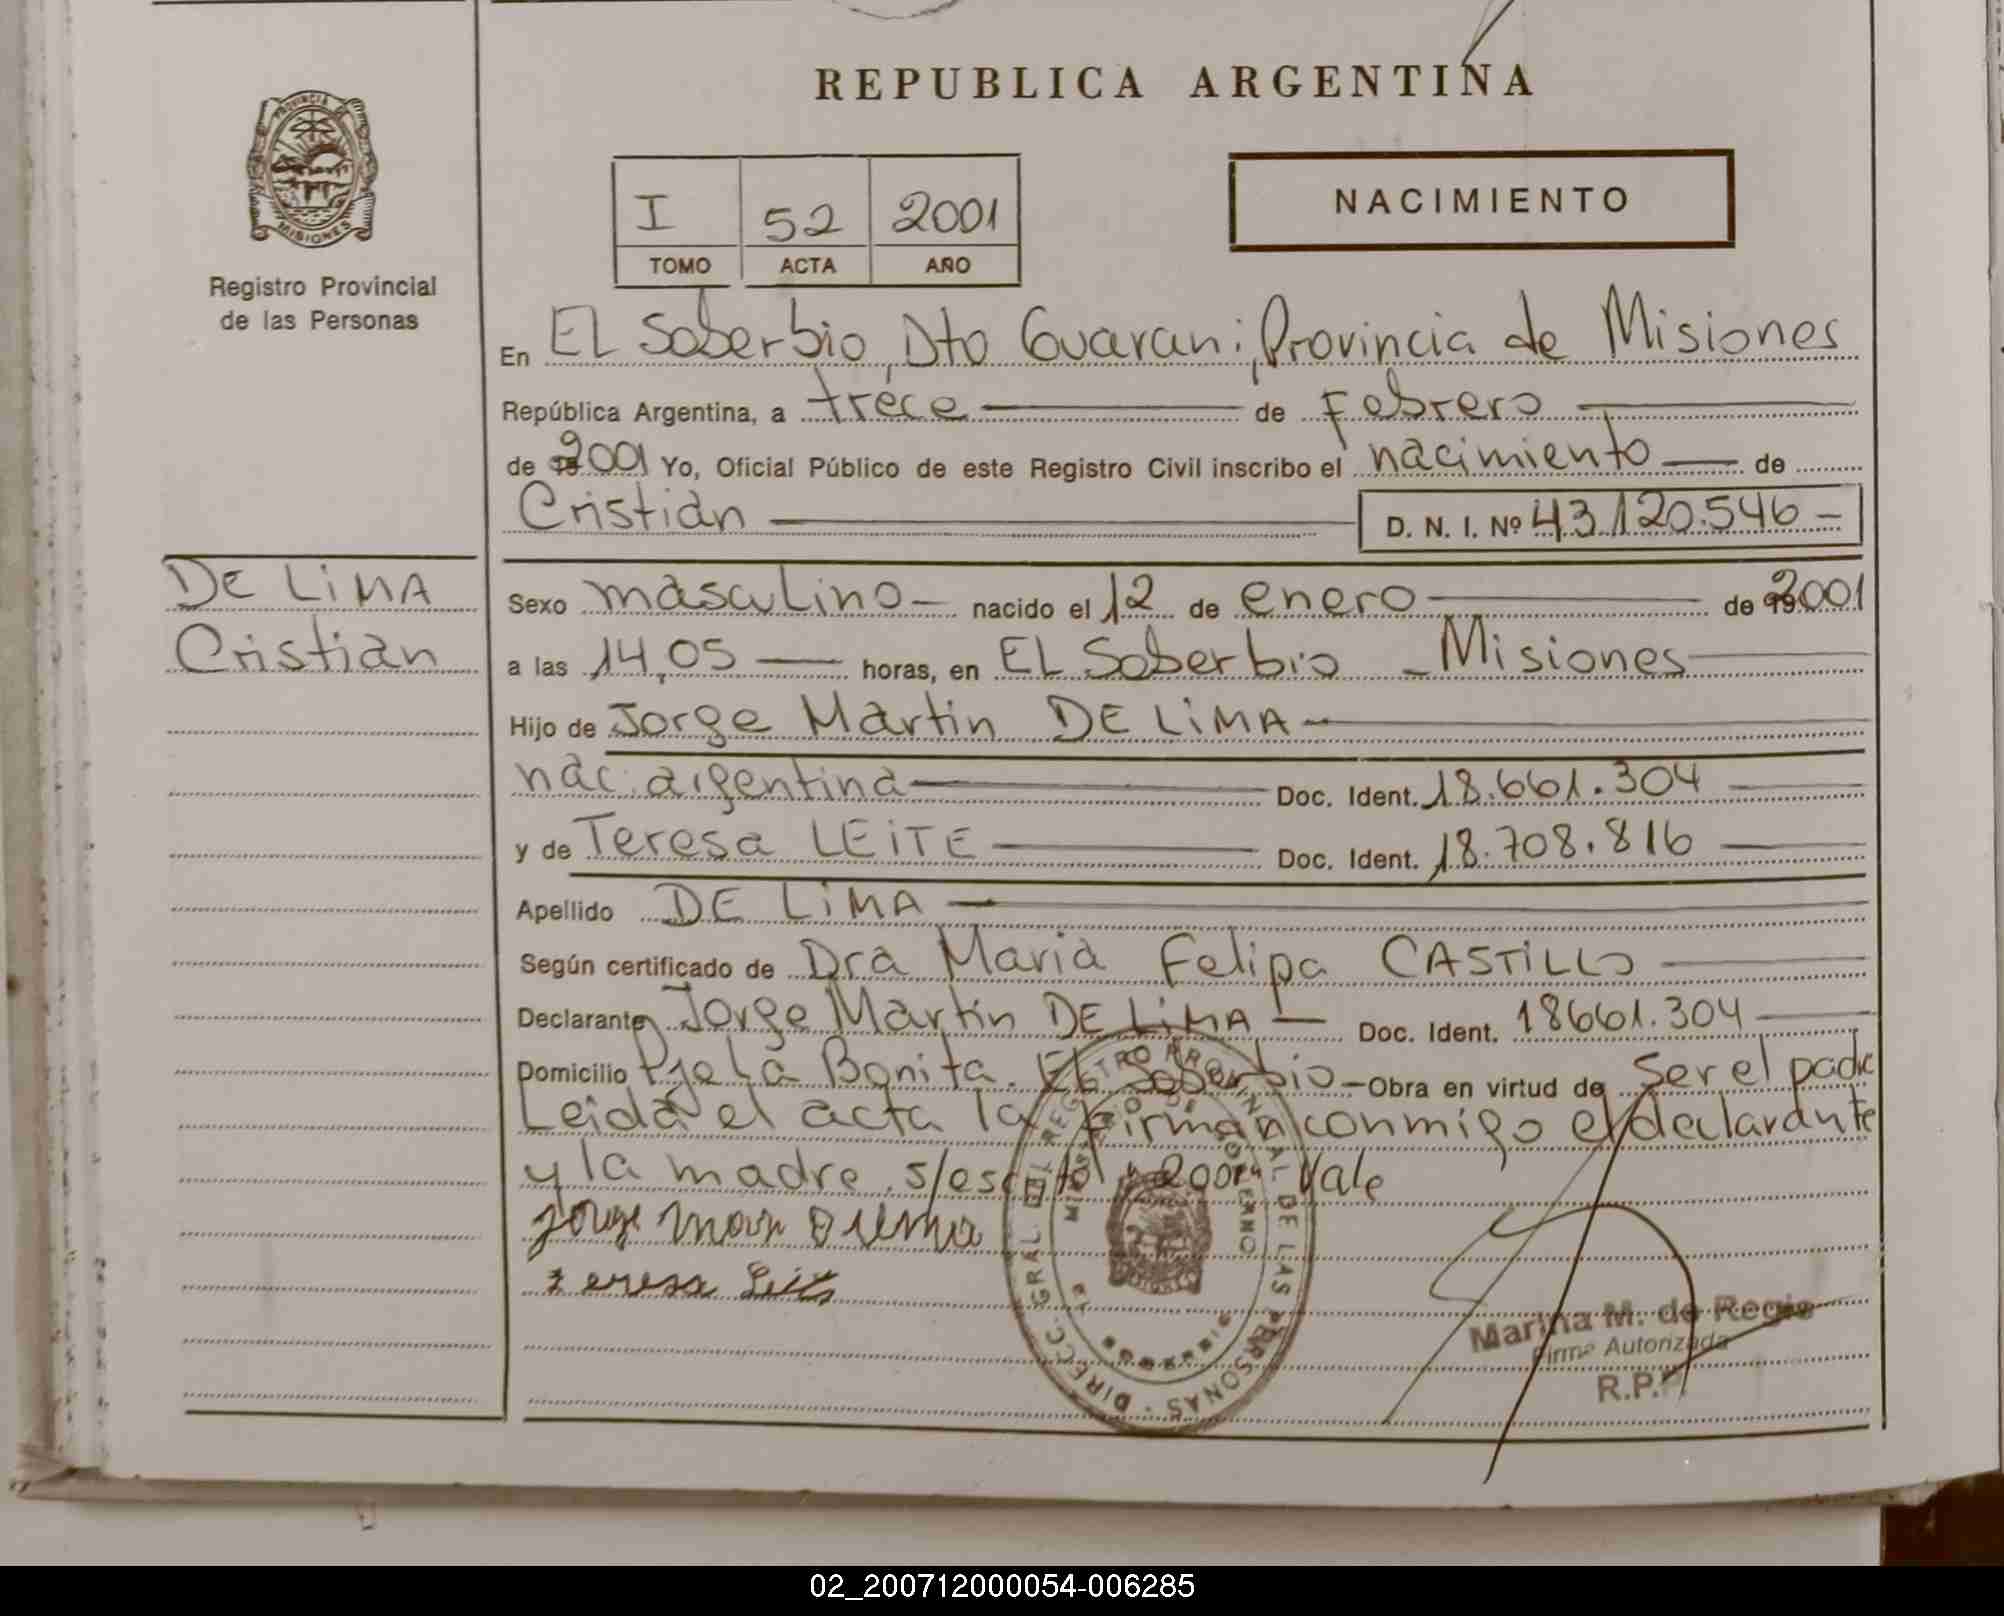 REPUBLICA ARGENTINA
PROVINCIA DE MISIONES
Registro Provincial
de las Personas
I 52 2001
TOMO ACTA AÑO
NACIMIENTO
En EL Soberbio, Dto Guarani, Provincia de Misiones
República Argentina, a trece de Febrero
de 2001 Yo, Oficial Público de este Registro Civil inscribo el nacimiento de
Cristian D. N. I. Nº 43.120.546
DE LiMA
Cristian
Sexo masculino nacido el 12 de enero de 2001
a las 14,05 horas, en EL Soberbio - Misiones
Hijo de Jorge Martin DE LiMA
nac. argentina Doc. Ident. 18.661.304
y de Teresa LEiTE Doc. Ident. 18.708.816
Apellido DE LiMA
Según certificado de Dra Maria Felipa CASTiLLO
Declarante Jorge Martin DE LiMA Doc. Ident. 18661.304
Domicilio Pje La Bonita. EL Soberbio Obra en virtud de Ser el padre
Leida el acta la firman conmigo el declarante
y la madre. s/escrito "2001" Vale
Teresa
DIRECC. GRAL. DEL REGISTRO PROVINCIAL DE LAS PERSONAS
MINISTERIO DE GOBIERNO
Marina M. de Regis
Firma Autorizada
R.P.P.
02_200712000054-006285